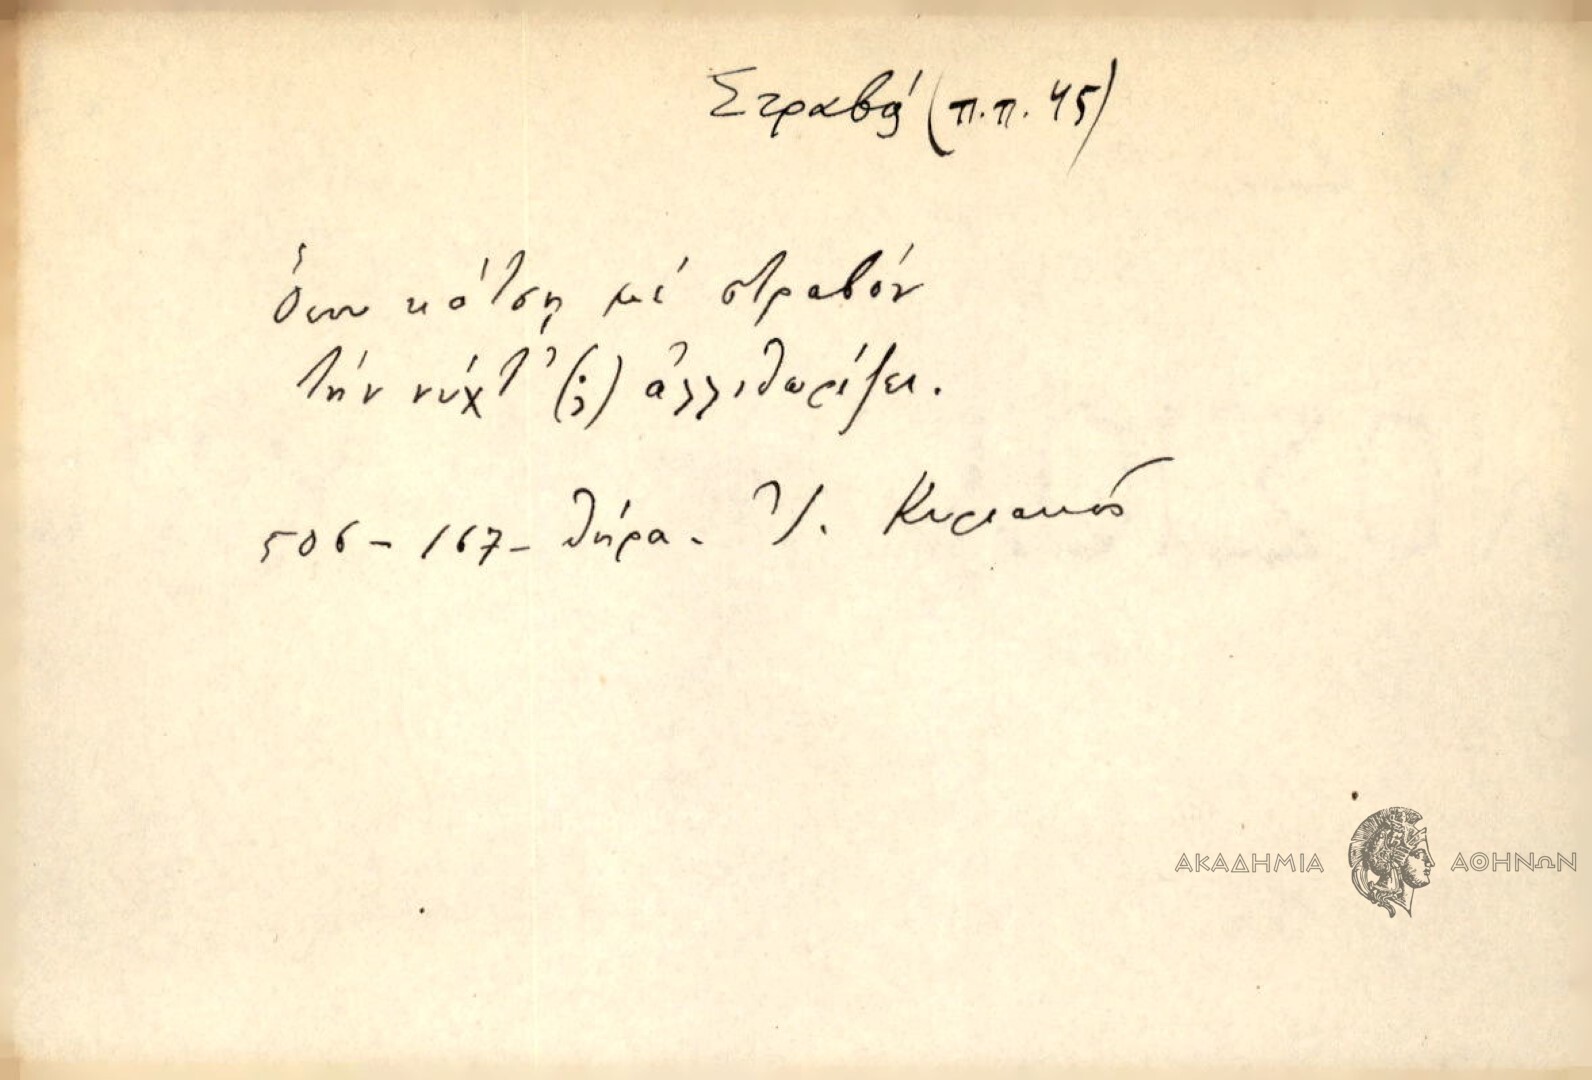 Στραβά (π.π. 45)
Ὅπου κάτση μέ στραβόν
τήν νύχτ' (;) ἀλλιθωρίζει.
506 - 167 - Θήρα. Ἰ. Κυριακός
ΑΚΑΔΗΜΙΑ ΑΘΗΝΩΝ